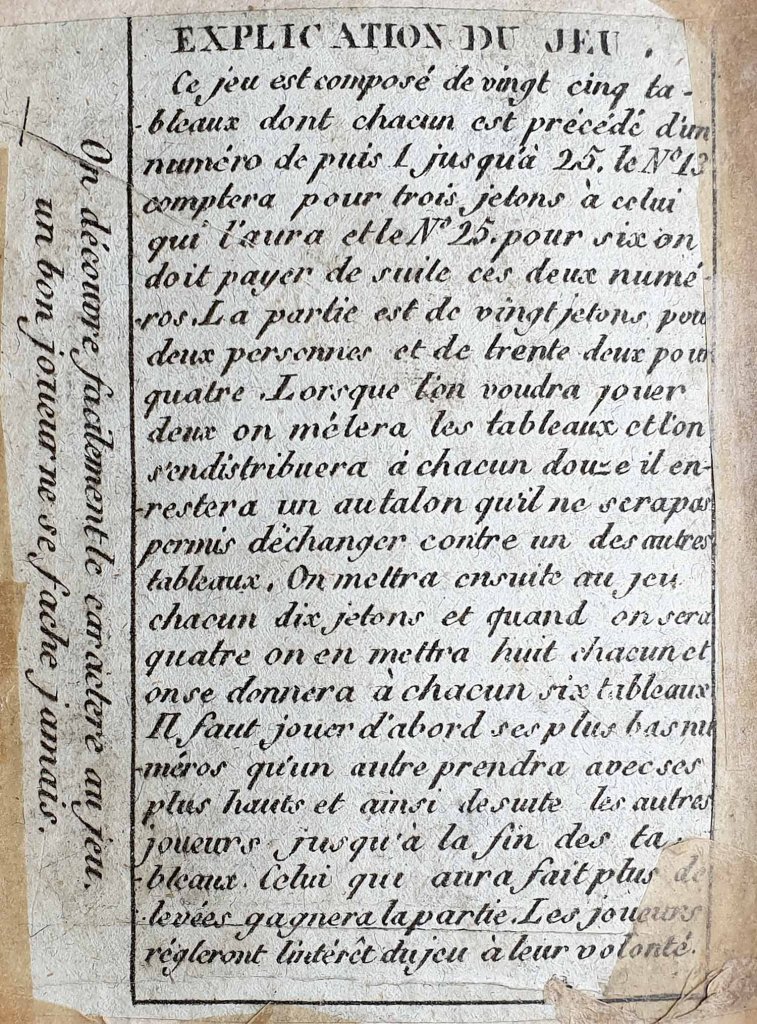 EXPLICATION DU JEU.
Ce jeu est composé de vingt cinq ta-
bleaux dont chacun est précédé d'un
numéro de puis 1 jusqu'à 25. le Nº 13
comptera pour trois jetons à celui
qui l'aura et le Nº 25. pour six on
doit payer de suite ces deux numé-
ros. La partie est de vingt jetons pou
deux personnes et de trente deux pour
quatre. Lorsque l'on voudra jouer
deux on mêlera les tableaux et l'on
s'en distribuera à chacun douze il en
restera un au talon qu'il ne sera pas
permis d'échanger contre un des autres
tableaux. On mettra ensuite au jeu
chacun dix jetons et quand on sera
quatre on en mettra huit chacun et
on se donnera à chacun six tableaux
Il faut jouer d'abord ses plus bas nu
méros qu'un autre prendra avec ses
plus hauts et ainsi de suite les autres
joueurs jusqu'à la fin des ta-
bleaux. Celui qui aura fait plus de
levées gagnera la partie. Les joueurs
régleront l'intérêt du jeu à leur volonté.
On découvre facilement le caractere au jeu,
un bon joueur ne se fache jamais.